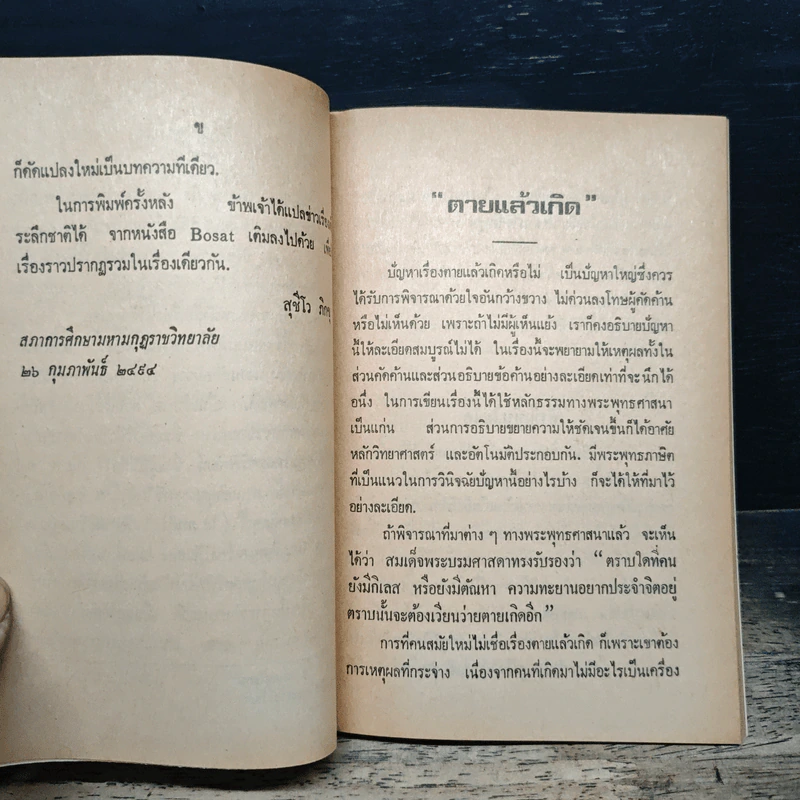 ข
ก็ดัดแปลงใหม่เป็นบทความทีเดียว.
ในการพิมพ์ครั้งหลัง ข้าพเจ้าได้แปลข่าวเรื่อง
ระลึกชาติได้ จากหนังสือ Bosat เติมลงไปด้วย
เรื่องราวปรากฏรวมในเรื่องเดียวกัน.
สุชีโว ภิกขุ
สภาการศึกษามหามกุฏราชวิทยาลัย
๒๖ กุมภาพันธ์ ๒๔๙๔
“ตายแล้วเกิด”
ปัญหาเรื่องตายแล้วเกิดหรือไม่ เป็นปัญหาใหญ่ซึ่งควร
ได้รับการพิจารณาด้วยใจอันกว้างขวาง ไม่ด่วนลงโทษผู้คัดค้าน
หรือไม่เห็นด้วย เพราะถ้าไม่มีผู้เห็นแย้ง เราก็คงอธิบายปัญหา
นี้ให้ละเอียดสมบูรณ์ไม่ได้ ในเรื่องนี้จะพยายามให้เหตุผลทั้งใน
ส่วนคัดค้านและส่วนอธิบายข้อค้านอย่างละเอียดเท่าที่จะนึกได้
อนึ่ง ในการเขียนเรื่องนี้ได้ใช้หลักธรรมทางพระพุทธศาสนา
เป็นแก่น ส่วนการอธิบายขยายความให้ชัดเจนขึ้นก็ได้อาศัย
หลักวิทยาศาสตร์ และอัตโนมัติประกอบกัน. มีพระพุทธภาษิต
ที่เป็นแนวในการวินิจฉัยปัญหานี้อย่างไรบ้าง ก็จะได้ให้ที่มาไว้
อย่างละเอียด.
ถ้าพิจารณาที่มาต่าง ๆ ทางพระพุทธศาสนาแล้ว จะเห็น
ได้ว่า สมเด็จพระบรมศาสดาทรงรับรองว่า “ตราบใดที่คน
ยังมีกิเลส หรือยังมีตัณหา ความทะยานอยากประจำจิตอยู่
ตราบนั้นจะต้องเวียนว่ายตายเกิดอีก”
การที่คนสมัยใหม่ไม่เชื่อเรื่องตายแล้วเกิด ก็เพราะเขาต้อง
การเหตุผลที่กระจ่าง เนื่องจากคนที่เกิดมาไม่มีอะไรเป็นเครื่อง